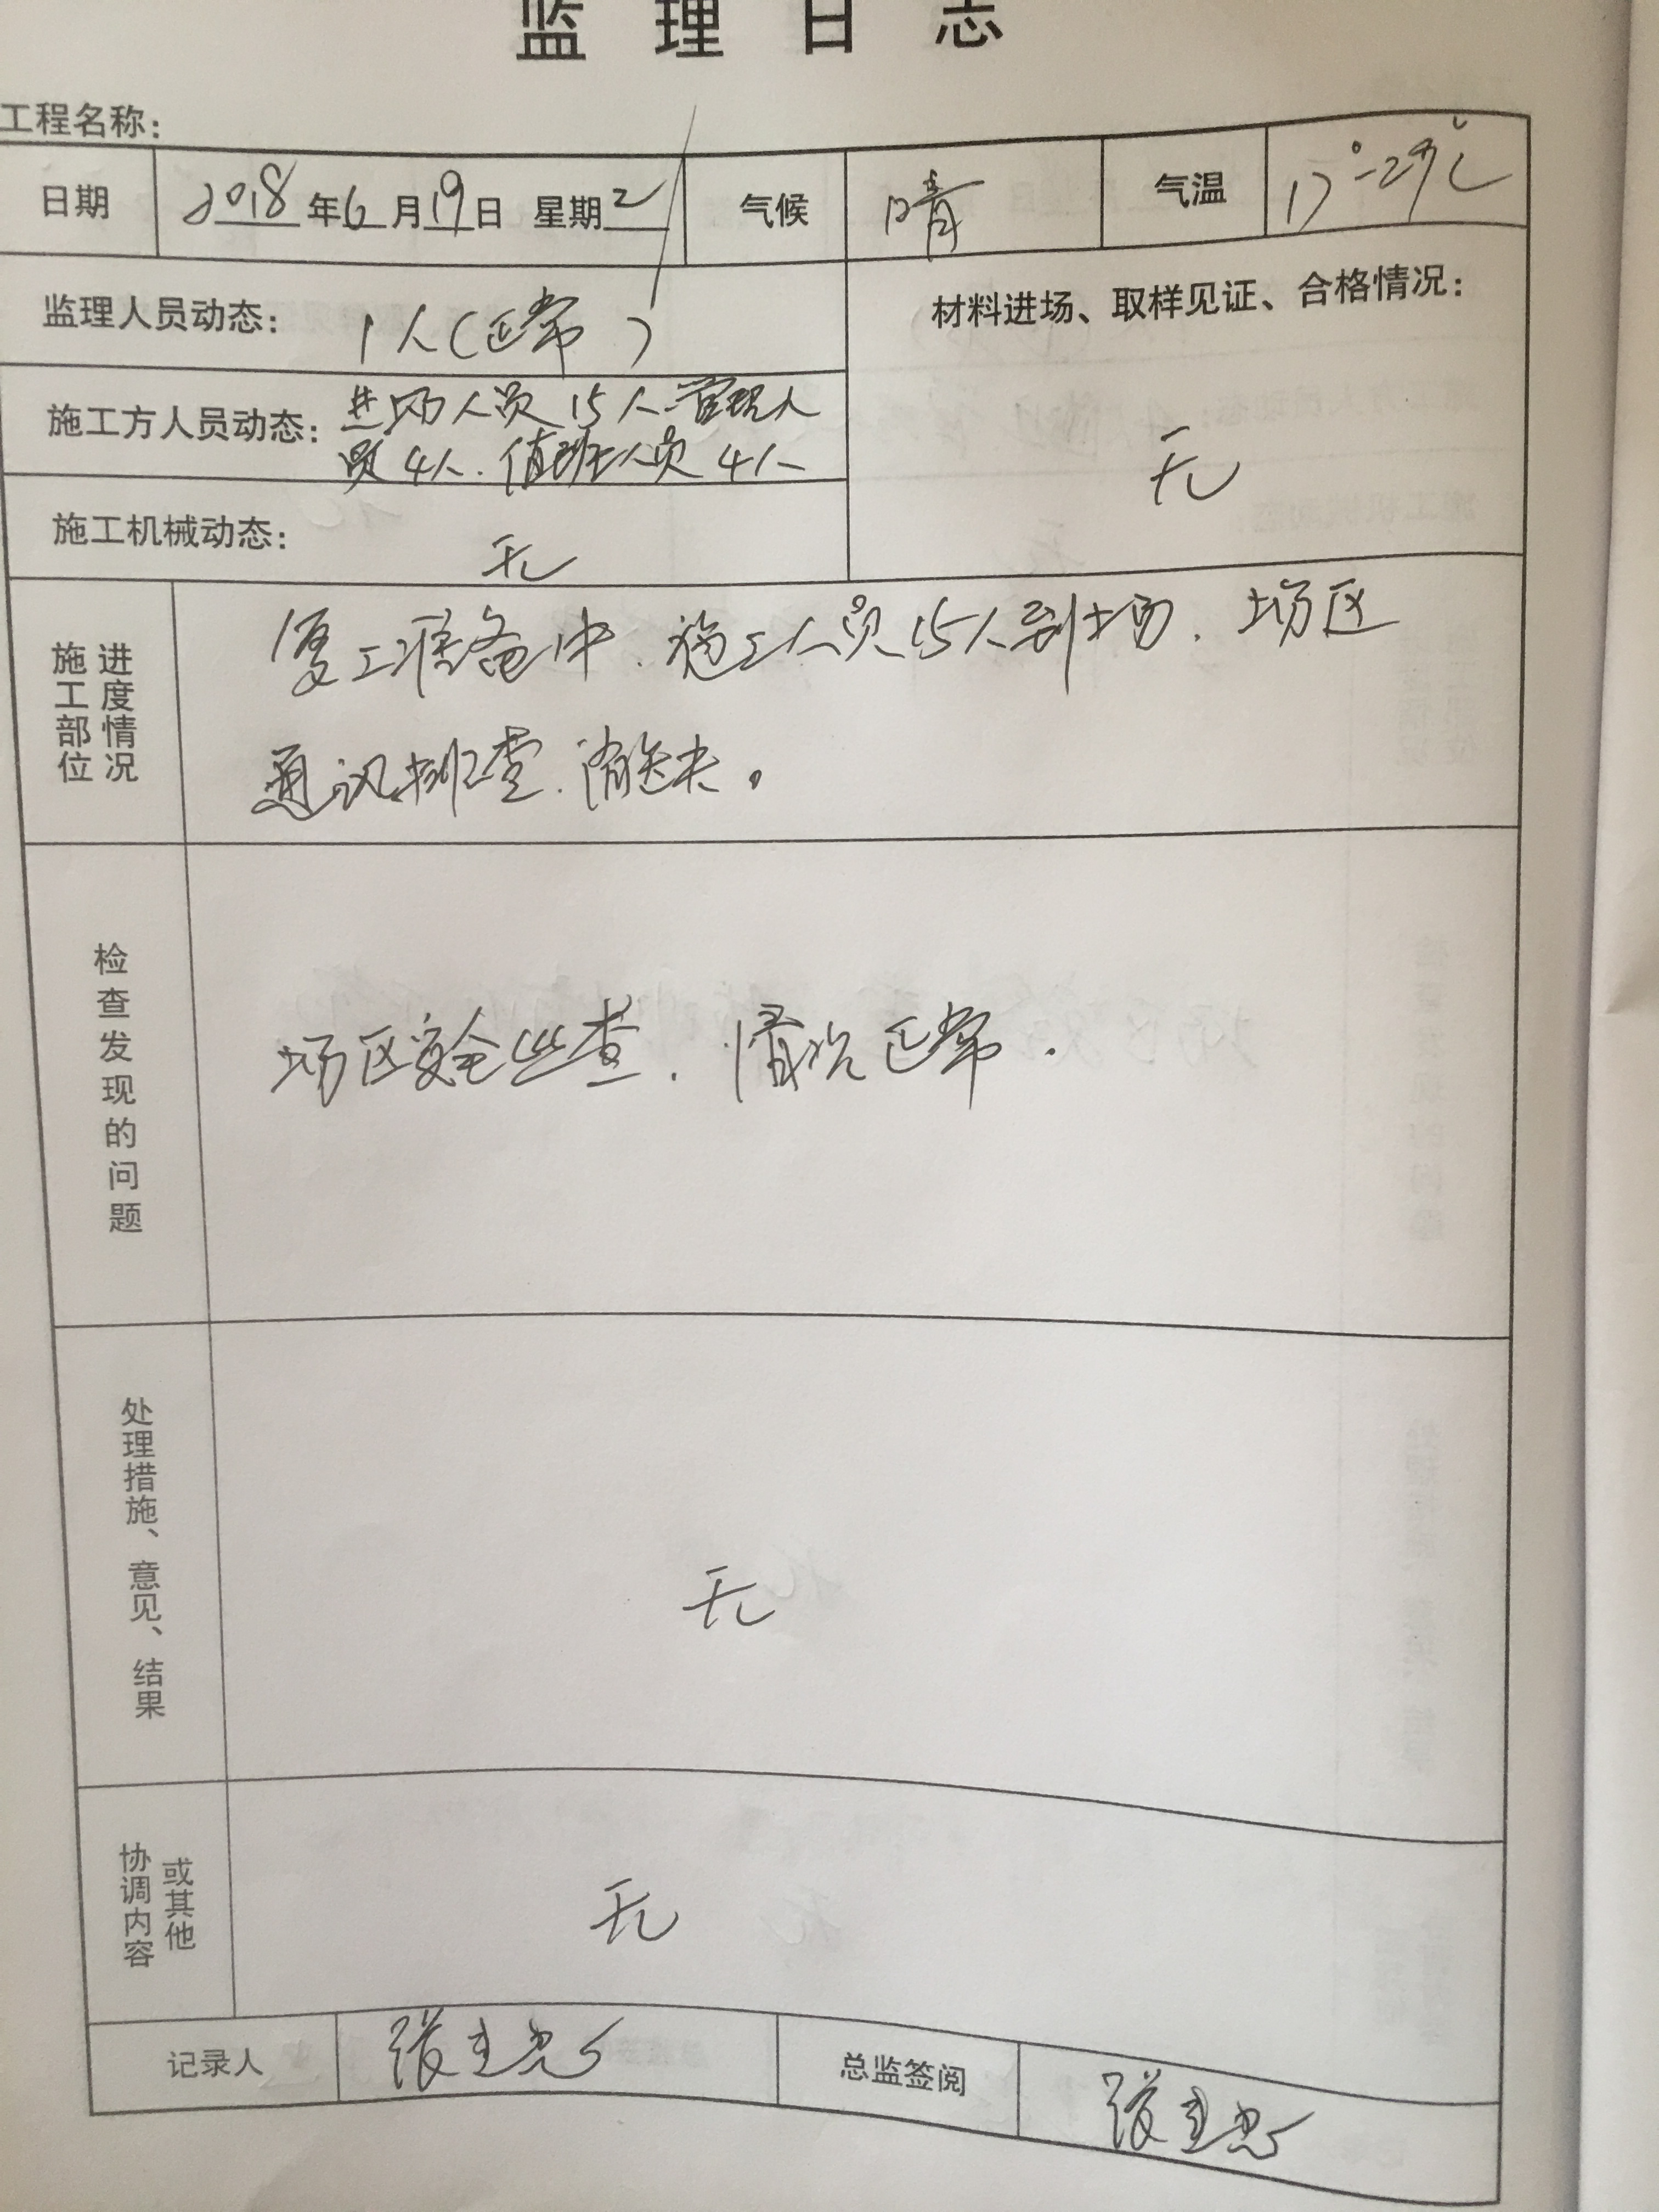 监理日志
工程名称：
日期 2018年6月19日 星期2 气候 晴 气温 17°-29℃
监理人员动态： 1人（正常）
材料进场、取样见证、合格情况：
无
施工方人员动态： 进场人员15人.管理人
员4人.值班人员4人
施工机械动态： 无
施工部位
进度情况
复工准备中.施工人员15人到场.场区
通讯排查.消缺。
检查发现的问题
场区安全巡查.情况正常.
处理措施、意见、结果
无
协调内容
或其他
无
记录人 总监签阅